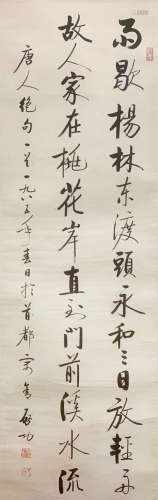 雨歇楊林東渡頭永和三日放輕舟
故人家在桃花岸直到門前溪水流
唐人絕句一首一九八五年春日於首都寓舍启功